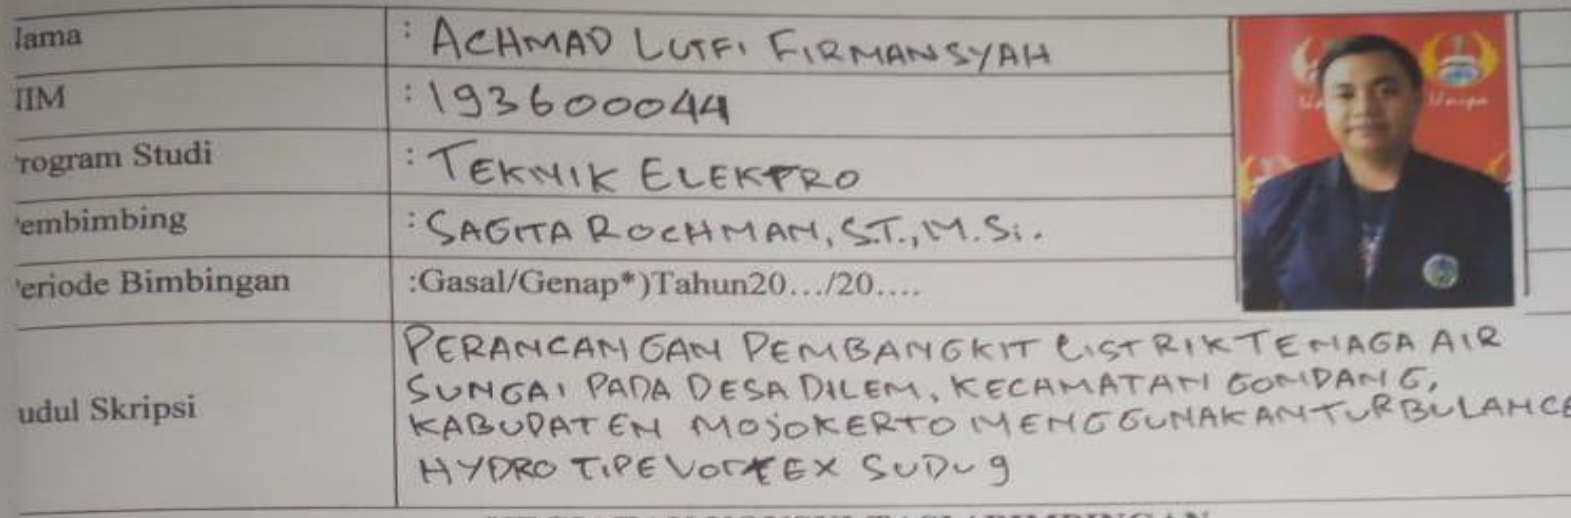 Nama : ACHMAD LUTFI FIRMANSYAH
NIM : 193600044
Program Studi : TEKNIK ELEKTRO
Pembimbing : SAGITA ROCHMAN, S.T., M.Si.
Periode Bimbingan :Gasal/Genap*)Tahun20.../20....
Judul Skripsi
PERANCANGAN PEMBANGKIT LISTRIK TENAGA AIR
SUNGAI PADA DESA DILEM, KECAMATAN GONDANG,
KABUPATEN MOJOKERTO MENGGUNAKAN TURBULANCE
HYDRO TIPE VORTEX SUDU 9
Unipa